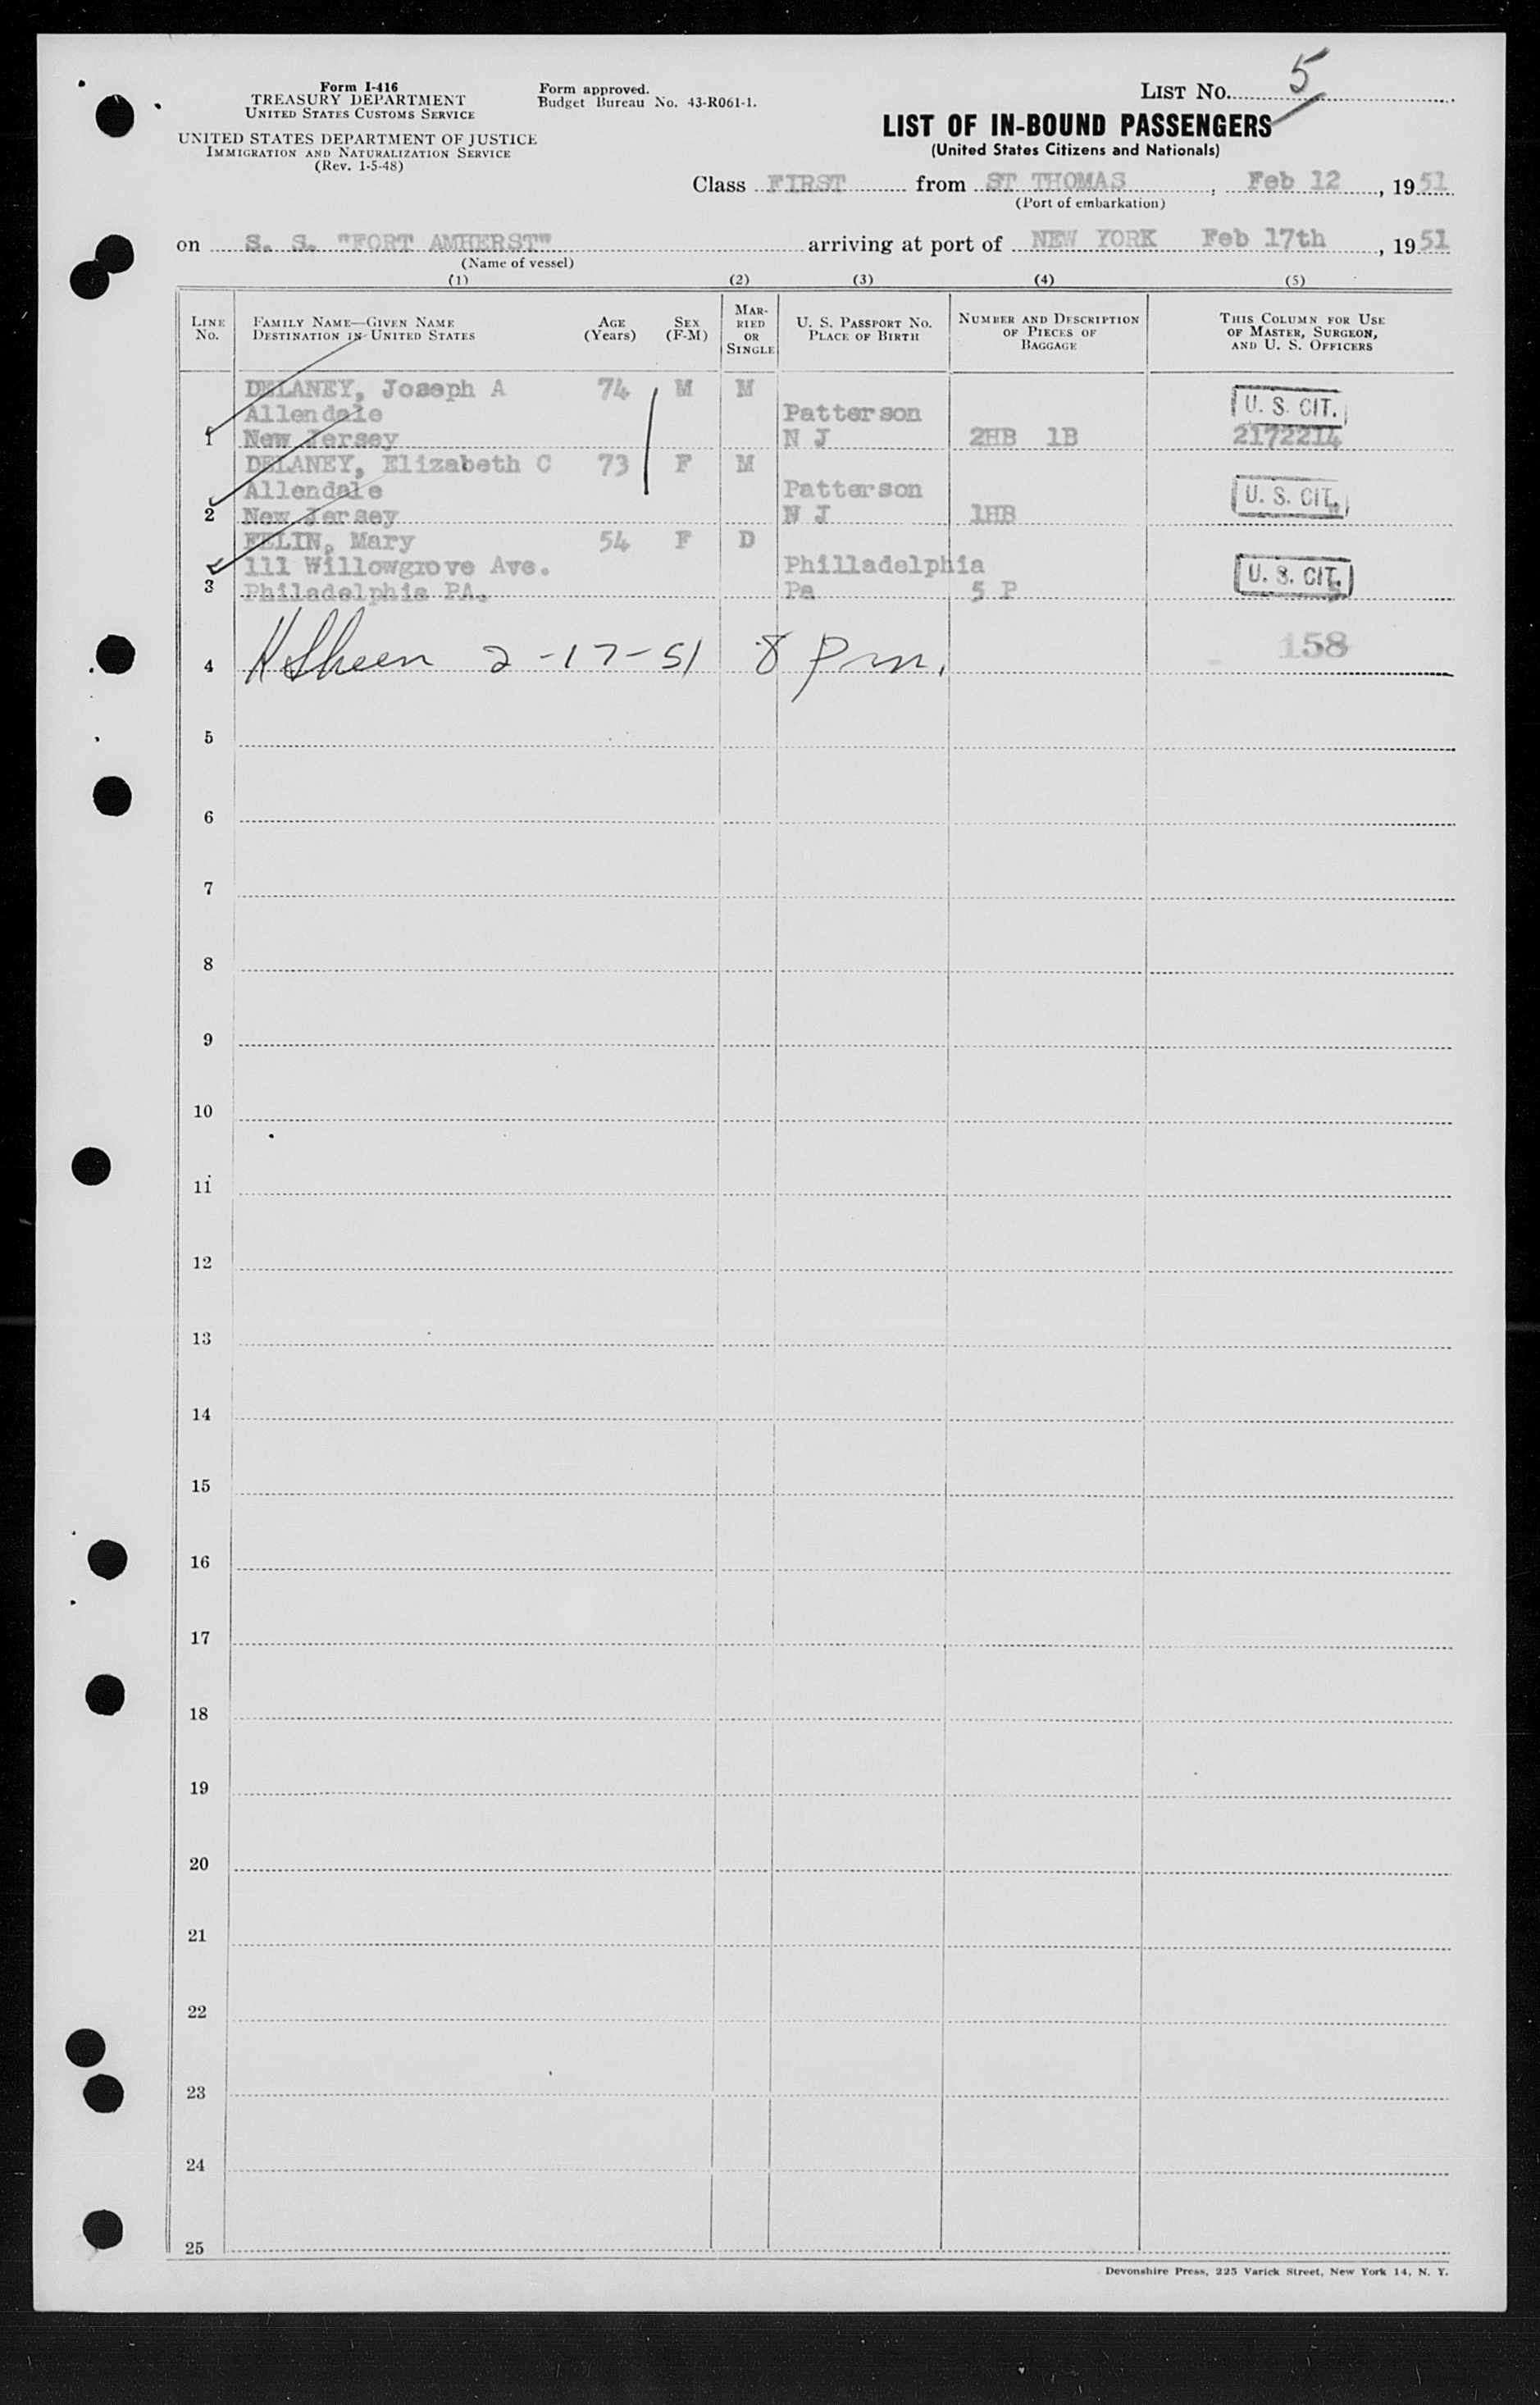 Form I-416
TREASURY DEPARTMENT
UNITED STATES CUSTOMS SERVICE
UNITED STATES DEPARTMENT OF JUSTICE
IMMIGRATION AND NATURALIZATION SERVICE
(Rev. 1-5-48)
Form approved.
Budget Bureau No. 43-R061-1.
LIST No. 5
LIST OF IN-BOUND PASSENGERS
(United States Citizens and Nationals)
Class FIRST from ST THOMAS, Feb 12, 1951
(Port of embarkation)
on S. S. "FORT AMHERST" arriving at port of NEW YORK Feb 17th, 1951
(Name of vessel)
(1) (2) (3) (4) (5)
LINE No. FAMILY NAME—GIVEN NAME DESTINATION IN UNITED STATES AGE (Years) SEX (F-M) MARRIED OR SINGLE U. S. PASSPORT NO. PLACE OF BIRTH NUMBER AND DESCRIPTION OF PIECES OF BAGGAGE THIS COLUMN FOR USE OF MASTER, SURGEON, AND U. S. OFFICERS
DELANEY, Joseph A 74 M M
Allendale Patterson U. S. CIT.
1 New Jersey N J 2HB 1B 2172214
DELANEY, Elizabeth C 73 F M
Allendale Patterson U. S. CIT.
2 New Jersey N J 1HB
FELIN, Mary 54 F D
111 Willowgrove Ave. Philladelphia U. S. CIT.
3 Philadelphia PA. Pa 5 P
158
4 2-17-51 8 pm.
5
6
7
8
9
10
11
12
13
14
15
16
17
18
19
20
21
22
23
24
25
Devonshire Press, 225 Varick Street, New York 14, N. Y.